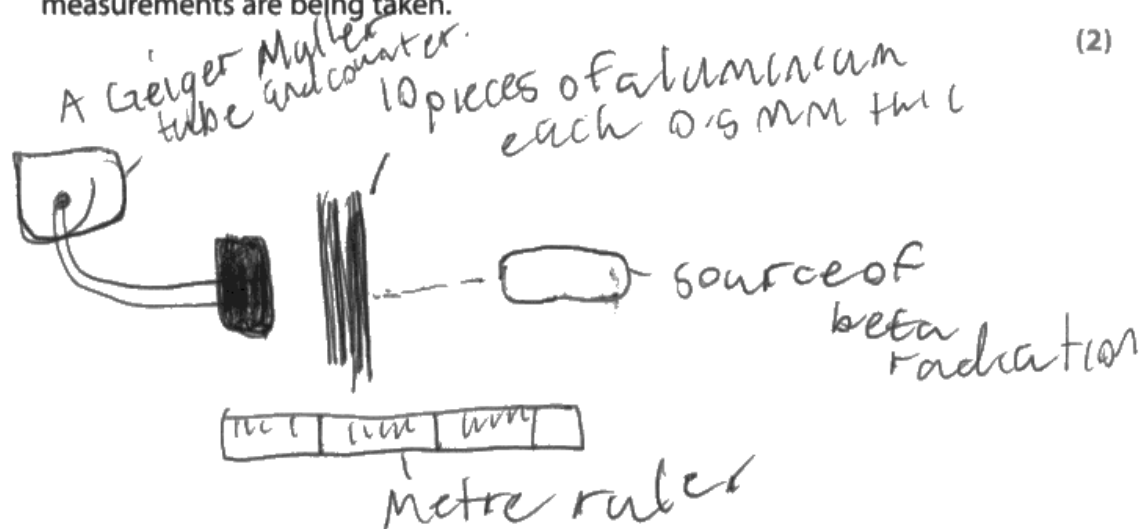 measurements are being taken.
(2)
A Geiger Myller
tube and counter.
10 pieces of aluminium
each 0.5 mm thic
source of
beta
radiation
Metre ruler